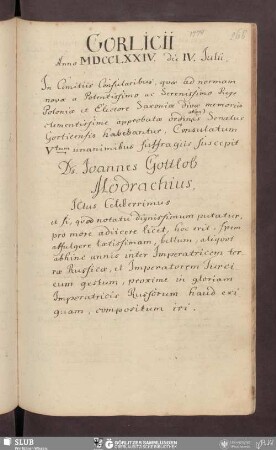 GORLICII
Anno MDCCLXXIV. die IV. Iulii
In Comitiis Consularibus, quae ad normam
novae a Potentissimo ac Serenissimo Rege
Poloniae et Electore Saxoniae divae memoriae
clementissime approbatae ordinis Senatus
Gorlicensis habebantur, Consulatum
Vtum unanimibus suffragiis suscepit
D. Ioannes Gottlob
Modrachius,
ICtus Celeberrimus
et si, quod notatu dignissimum putatur,
pro more adiicere licet, hoc erit: spem
affulgere laetissimam, bellum, aliquot
abhinc annis inter Imperatricem ter-
rae Russicae, et Imperatorem Turci
cum gestum, proxime in gloriam
Imperatricis Russorum haud exi
guam, compositum iri.
SLUB
Wir führen Wissen.
GÖRLITZER SAMMLUNGEN